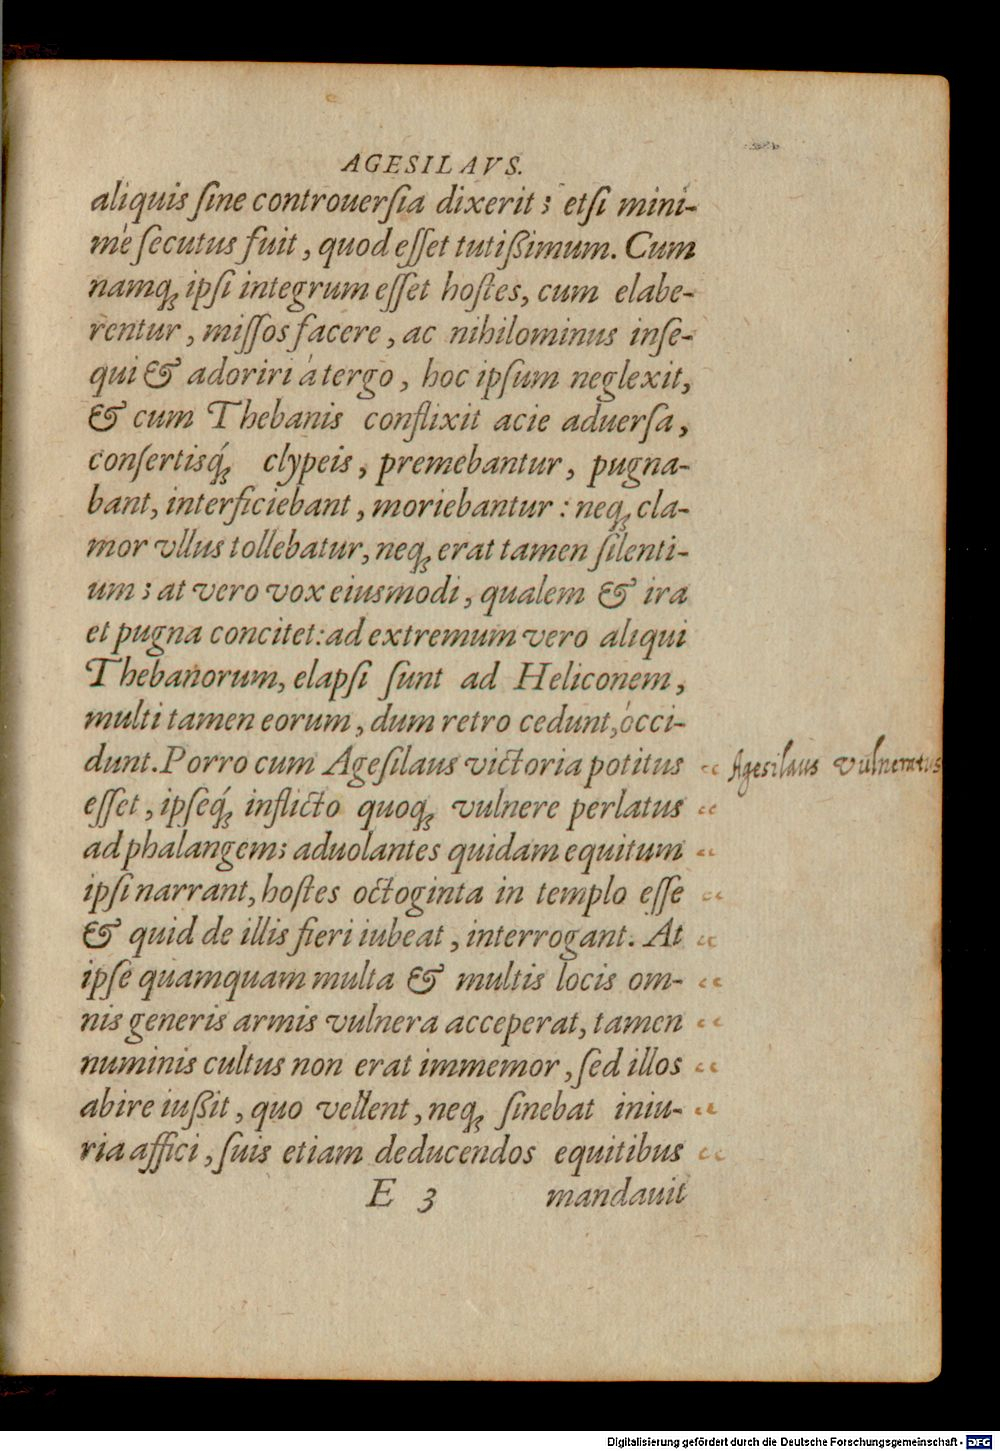 AGESILAVS.
aliquis ſine controuerſia dixerit ; etſi mini-
mè ſecutus fuit , quod eſſet tutißimum. Cum
namq; ipſi integrum eſſet hoſtes, cum elabe-
rentur , miſſos facere , ac nihilominus inſe-
qui & adoriri à tergo , hoc ipſum neglexit,
& cum Thebanis conflixit acie aduerſa ,
conſertisq́; clypeis , premebantur , pugna-
bant, interficiebant , moriebantur : neq; cla-
mor vllus tollebatur, neq; erat tamen ſilenti-
um ; at vero vox eiusmodi , qualem & ira
et pugna concitet: ad extremum vero aliqui
Thebanorum, elapſi ſunt ad Heliconem ,
multi tamen eorum , dum retro cedunt, occi-
dunt. Porro cum Ageſilaus victoria potitus
Agesilaus vulneratus
eſſet , ipſeq́; inflicto quoq; vulnere perlatus
ad phalangem; aduolantes quidam equitum
ipſi narrant, hoſtes octoginta in templo eſſe
& quid de illis fieri iubeat , interrogant. At
ipſe quamquam multa & multis locis om-
nis generis armis vulnera acceperat, tamen
numinis cultus non erat immemor , ſed illos
abire iußit , quo vellent , neq; ſinebat iniu-
ria affici , ſuis etiam deducendos equitibus
E 3 mandauit
Digitalisierung gefördert durch die Deutsche Forschungsgemeinschaft - DFG